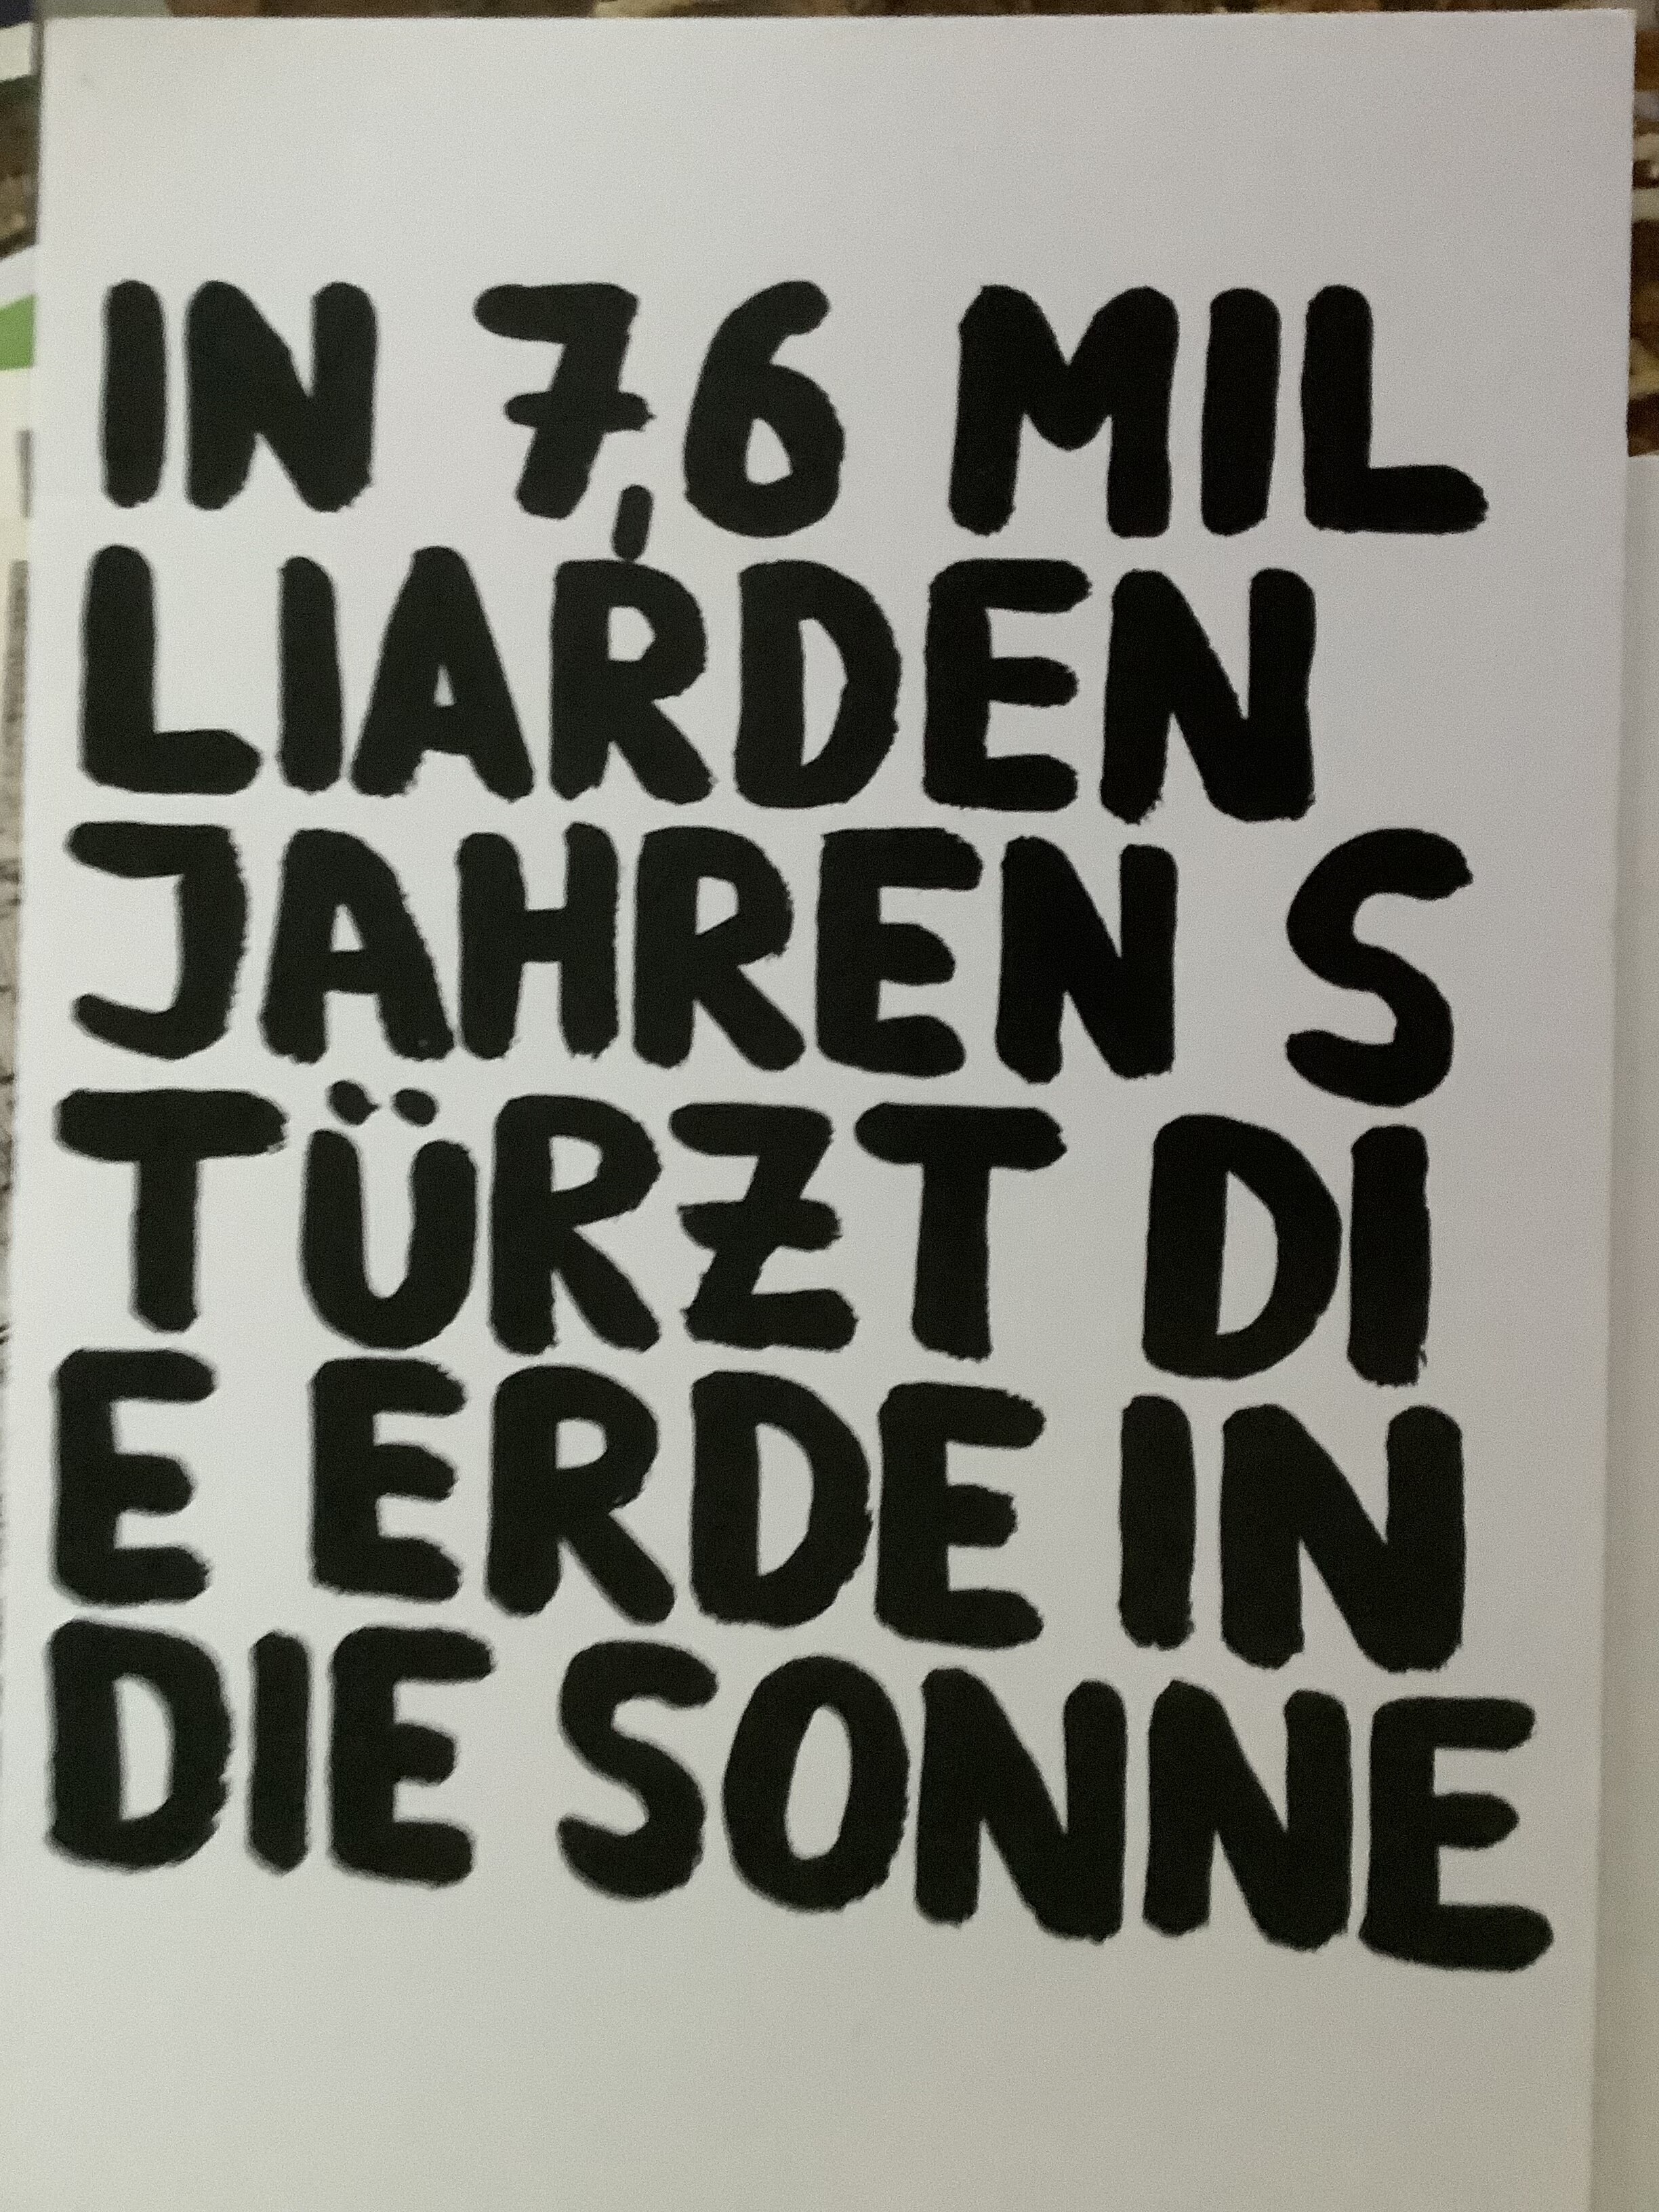 IN 7,6 MIL
LIARDEN
JAHREN S
TÜRZT DI
E ERDE IN
DIE SONNE